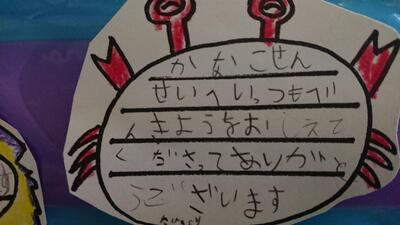 かなこせん
せいへいっつもべ
んきようをおしえて
くださってありがと
うございます